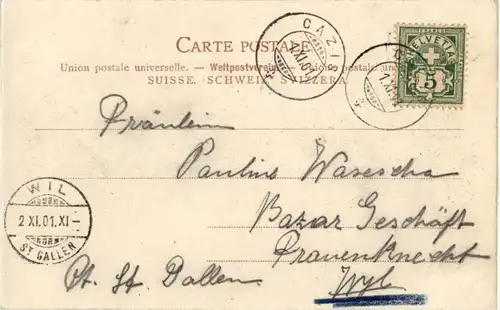 CARTE POSTALE.
Union postale universelle. — Weltpostverein
SUISSE. SCHWEIZ. SVIZZERA.
CAZIS
1.XI.01
HELVETIA
5
Fräulein
Pauline
Bazar Geschäft
Frauenknecht
Ct. St. Gallen.
Wyl
WIL
2 XI.01.XI
ST GALLEN